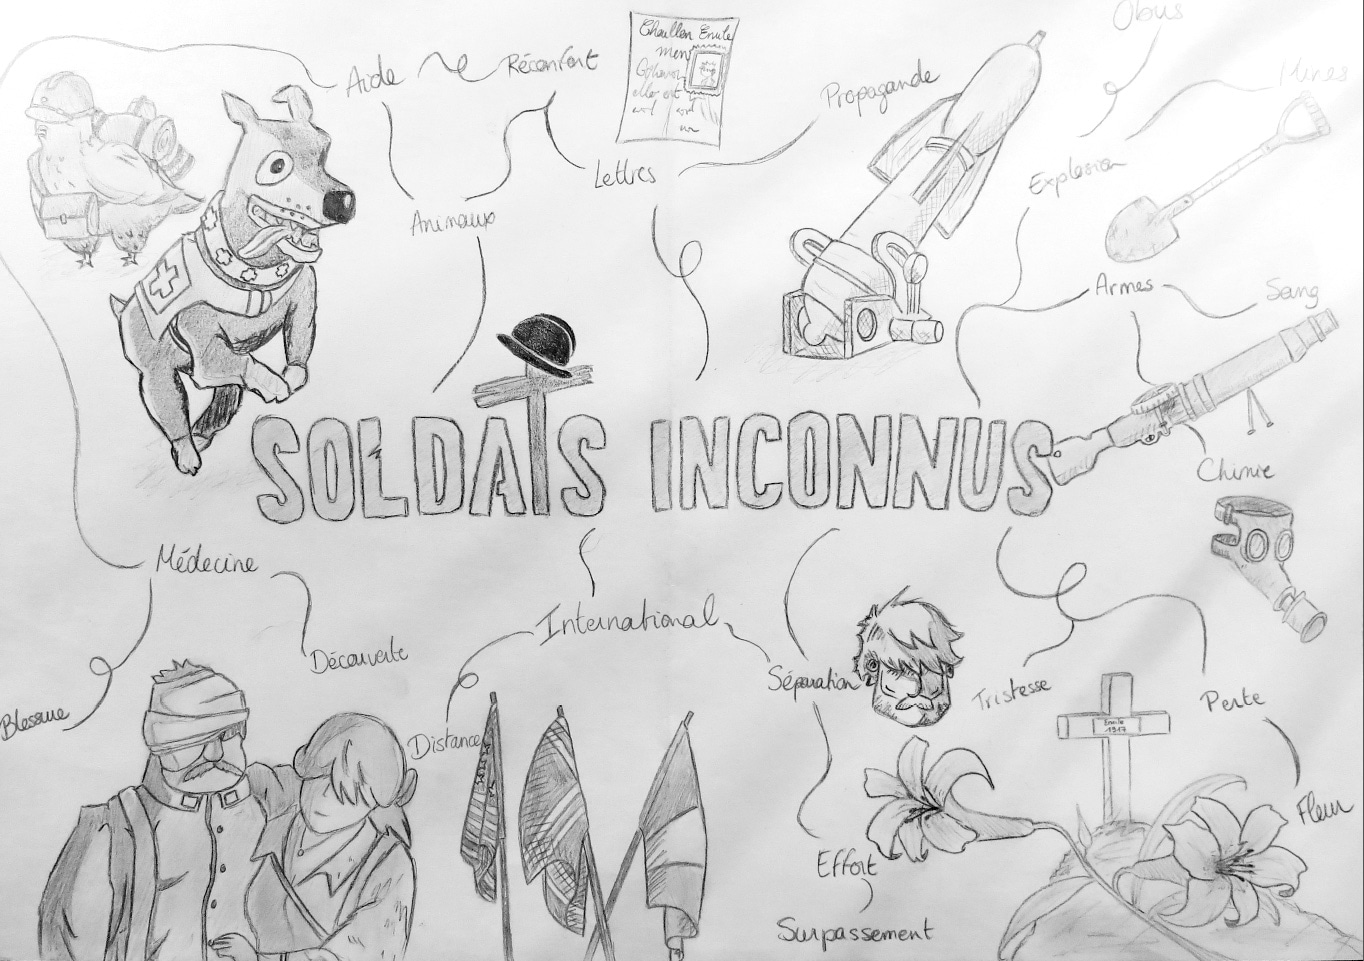 Obus
Aide
Réconfort
Chaillon Emile
Propagande
Mines
Lettres
Explosion
Animaux
Armes
Sang
SOLDATS INCONNUS
Chimie
Médecine
International
Découverte
Séparation
Tristesse
Perte
Blessure
Distance
Emile
1917
Fleur
Effort
Surpassement